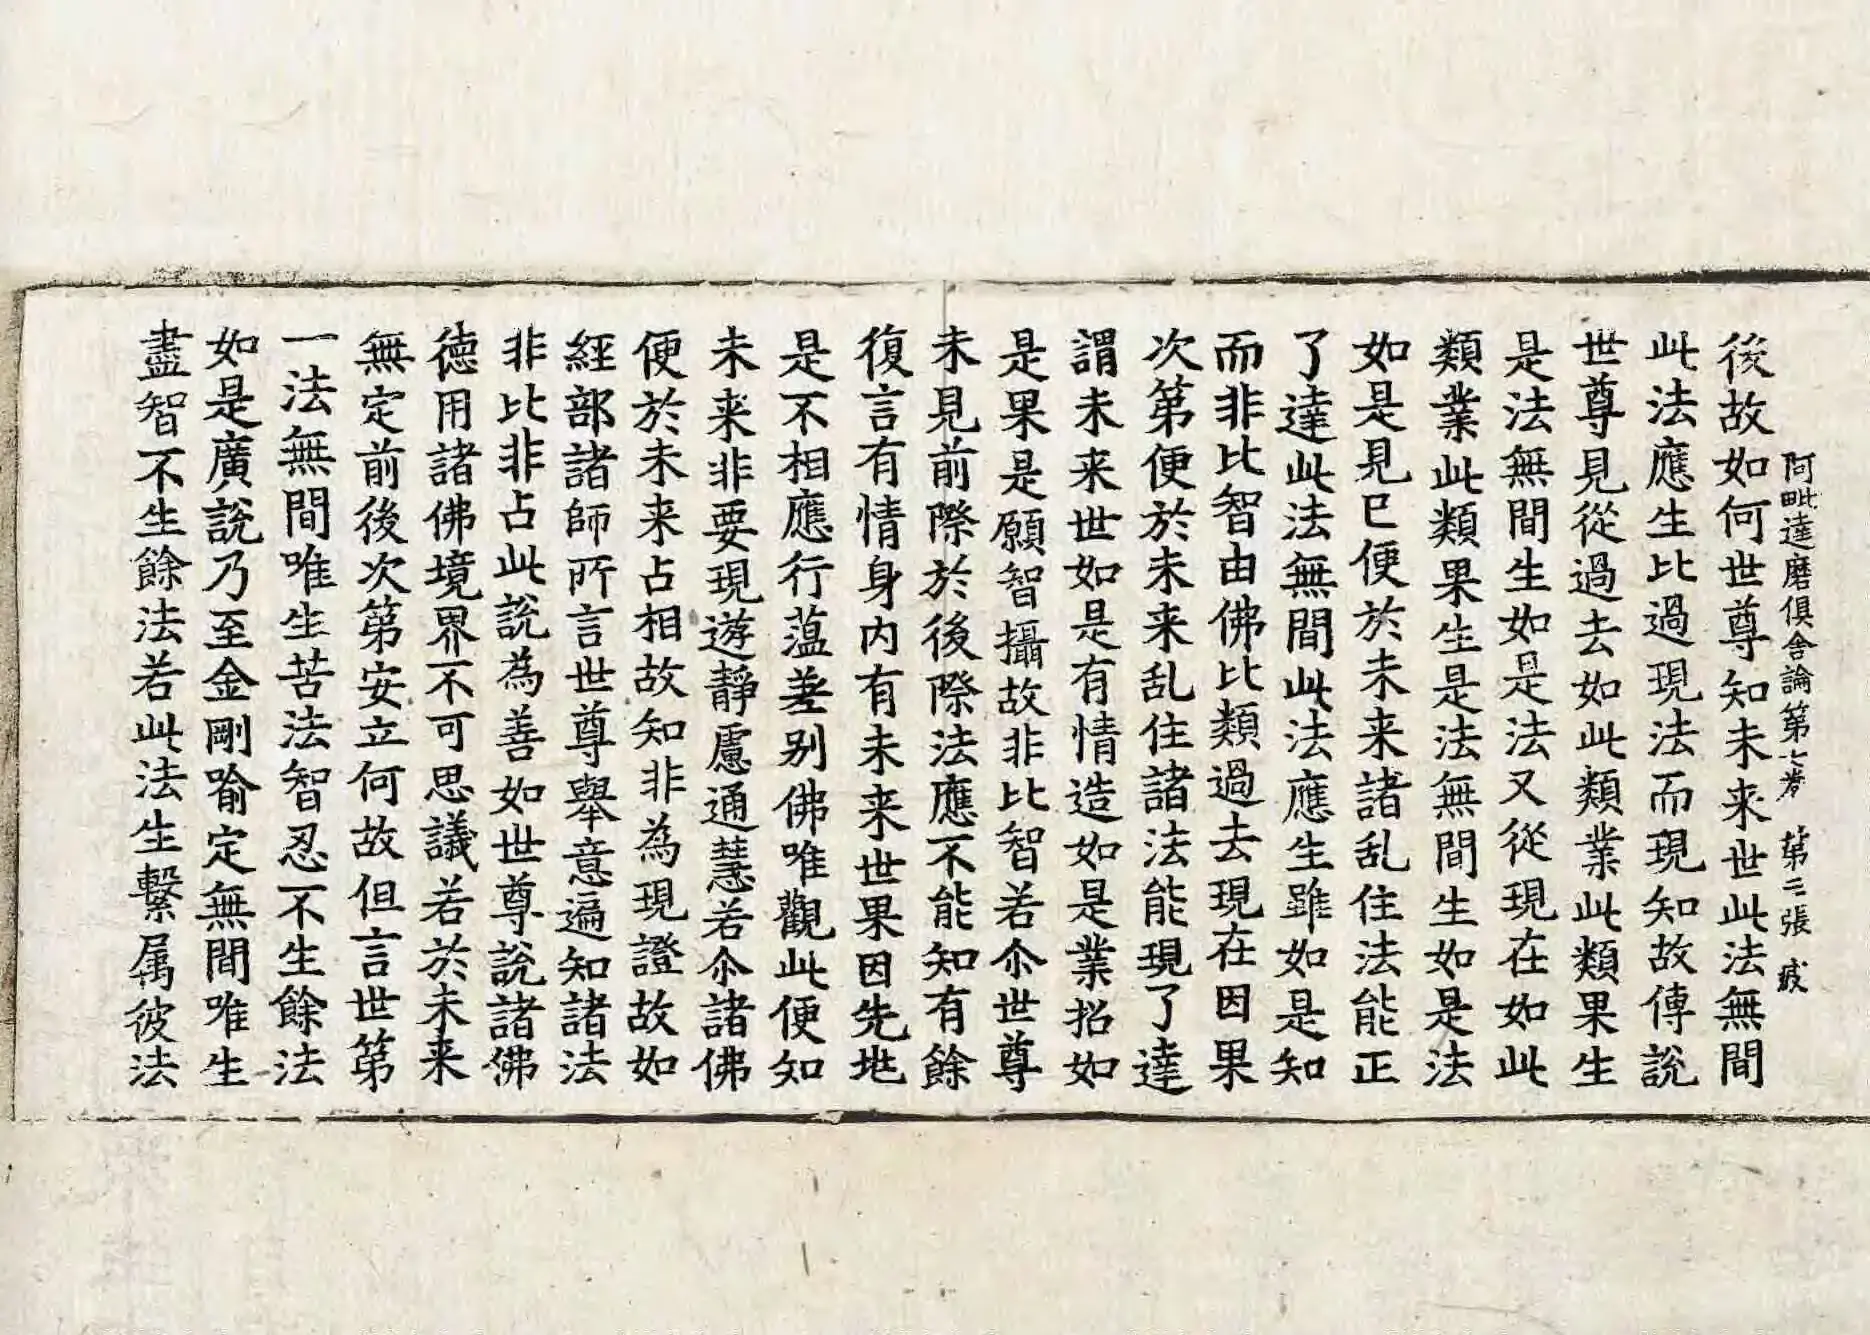 阿毗達磨俱舍論第七卷 第三張 疲
後故如何世尊知未來世此法無間
此法應生比過現法而現知故傳說
世尊見從過去如此類業此類果生
是法無間生如是法又從現在如此
類業此類果生是法無間生如是法
如是見已便於未来諸乱住法能正
了達此法無間此法應生雖如是知
而非比智由佛比類過去現在因果
次第便於未来乱住諸法能現了達
謂未来世如是有情造如是業招如
是果是願智攝故非比智若尒世尊
未見前際於後際法應不能知有餘
復言有情身內有未来世果因先地
是不相應行薀差别佛唯觀此便知
未来非要現遊靜慮通慧若尒諸佛
便於未来占相故知非為現證故如
經部諸師所言世尊舉意遍知諸法
非比非占此說為善如世尊說諸佛
德用諸佛境界不可思議若於未来
無定前後次第安立何故但言世第
一法無間唯生苦法智忍不生餘法
如是廣說乃至金剛喻定無間唯生
盡智不生餘法若此法生繫属彼法